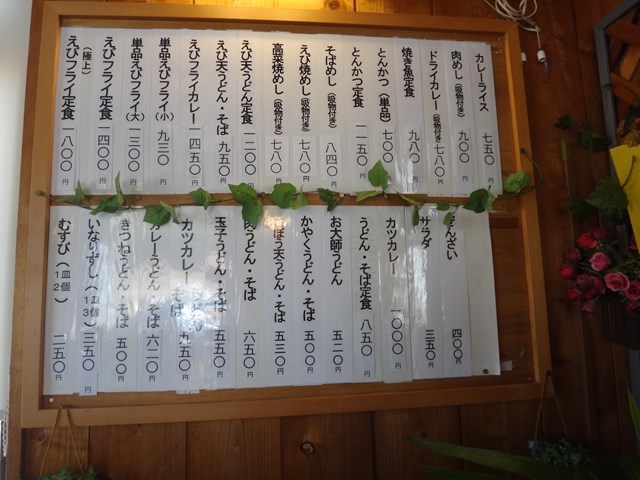 カレーライス 七五〇円
肉めし（吸物付き） 九〇〇円
ドライカレー（吸物付き） 七八〇円
焼き魚定食 九八〇円
とんかつ（単品） 七〇〇円
とんかつ定食 一一五〇円
そばめし（吸物付き） 八四〇円
えび焼めし（吸物付き） 七八〇円
高菜焼めし（吸物付き） 七八〇円
えび天うどん定食 一二〇〇円
えび天うどん・そば 九五〇円
えびフライカレー 一四五〇円
単品えびフライ（小） 九三〇円
単品えびフライ（大） 一三〇〇円
えびフライ定食 一四〇〇円
（極上）
えびフライ定食 一八〇〇円
ぜんざい 四〇〇円
サラダ 三五〇円
カツカレー 一〇〇〇円
うどん・そば定食 八五〇円
お大師うどん 五二〇円
かやくうどん・そば 五〇〇円
ごぼう天うどん・そば 五三〇円
肉うどん・そば 六五〇円
玉子うどん・そば 五五〇円
カツカレーうどん・そば 九五〇円
カレーうどん・そば 六二〇円
きつねうどん・そば 五〇〇円
いなりずし（1皿3個） 三五〇円
むすび（1皿2個） 二五〇円